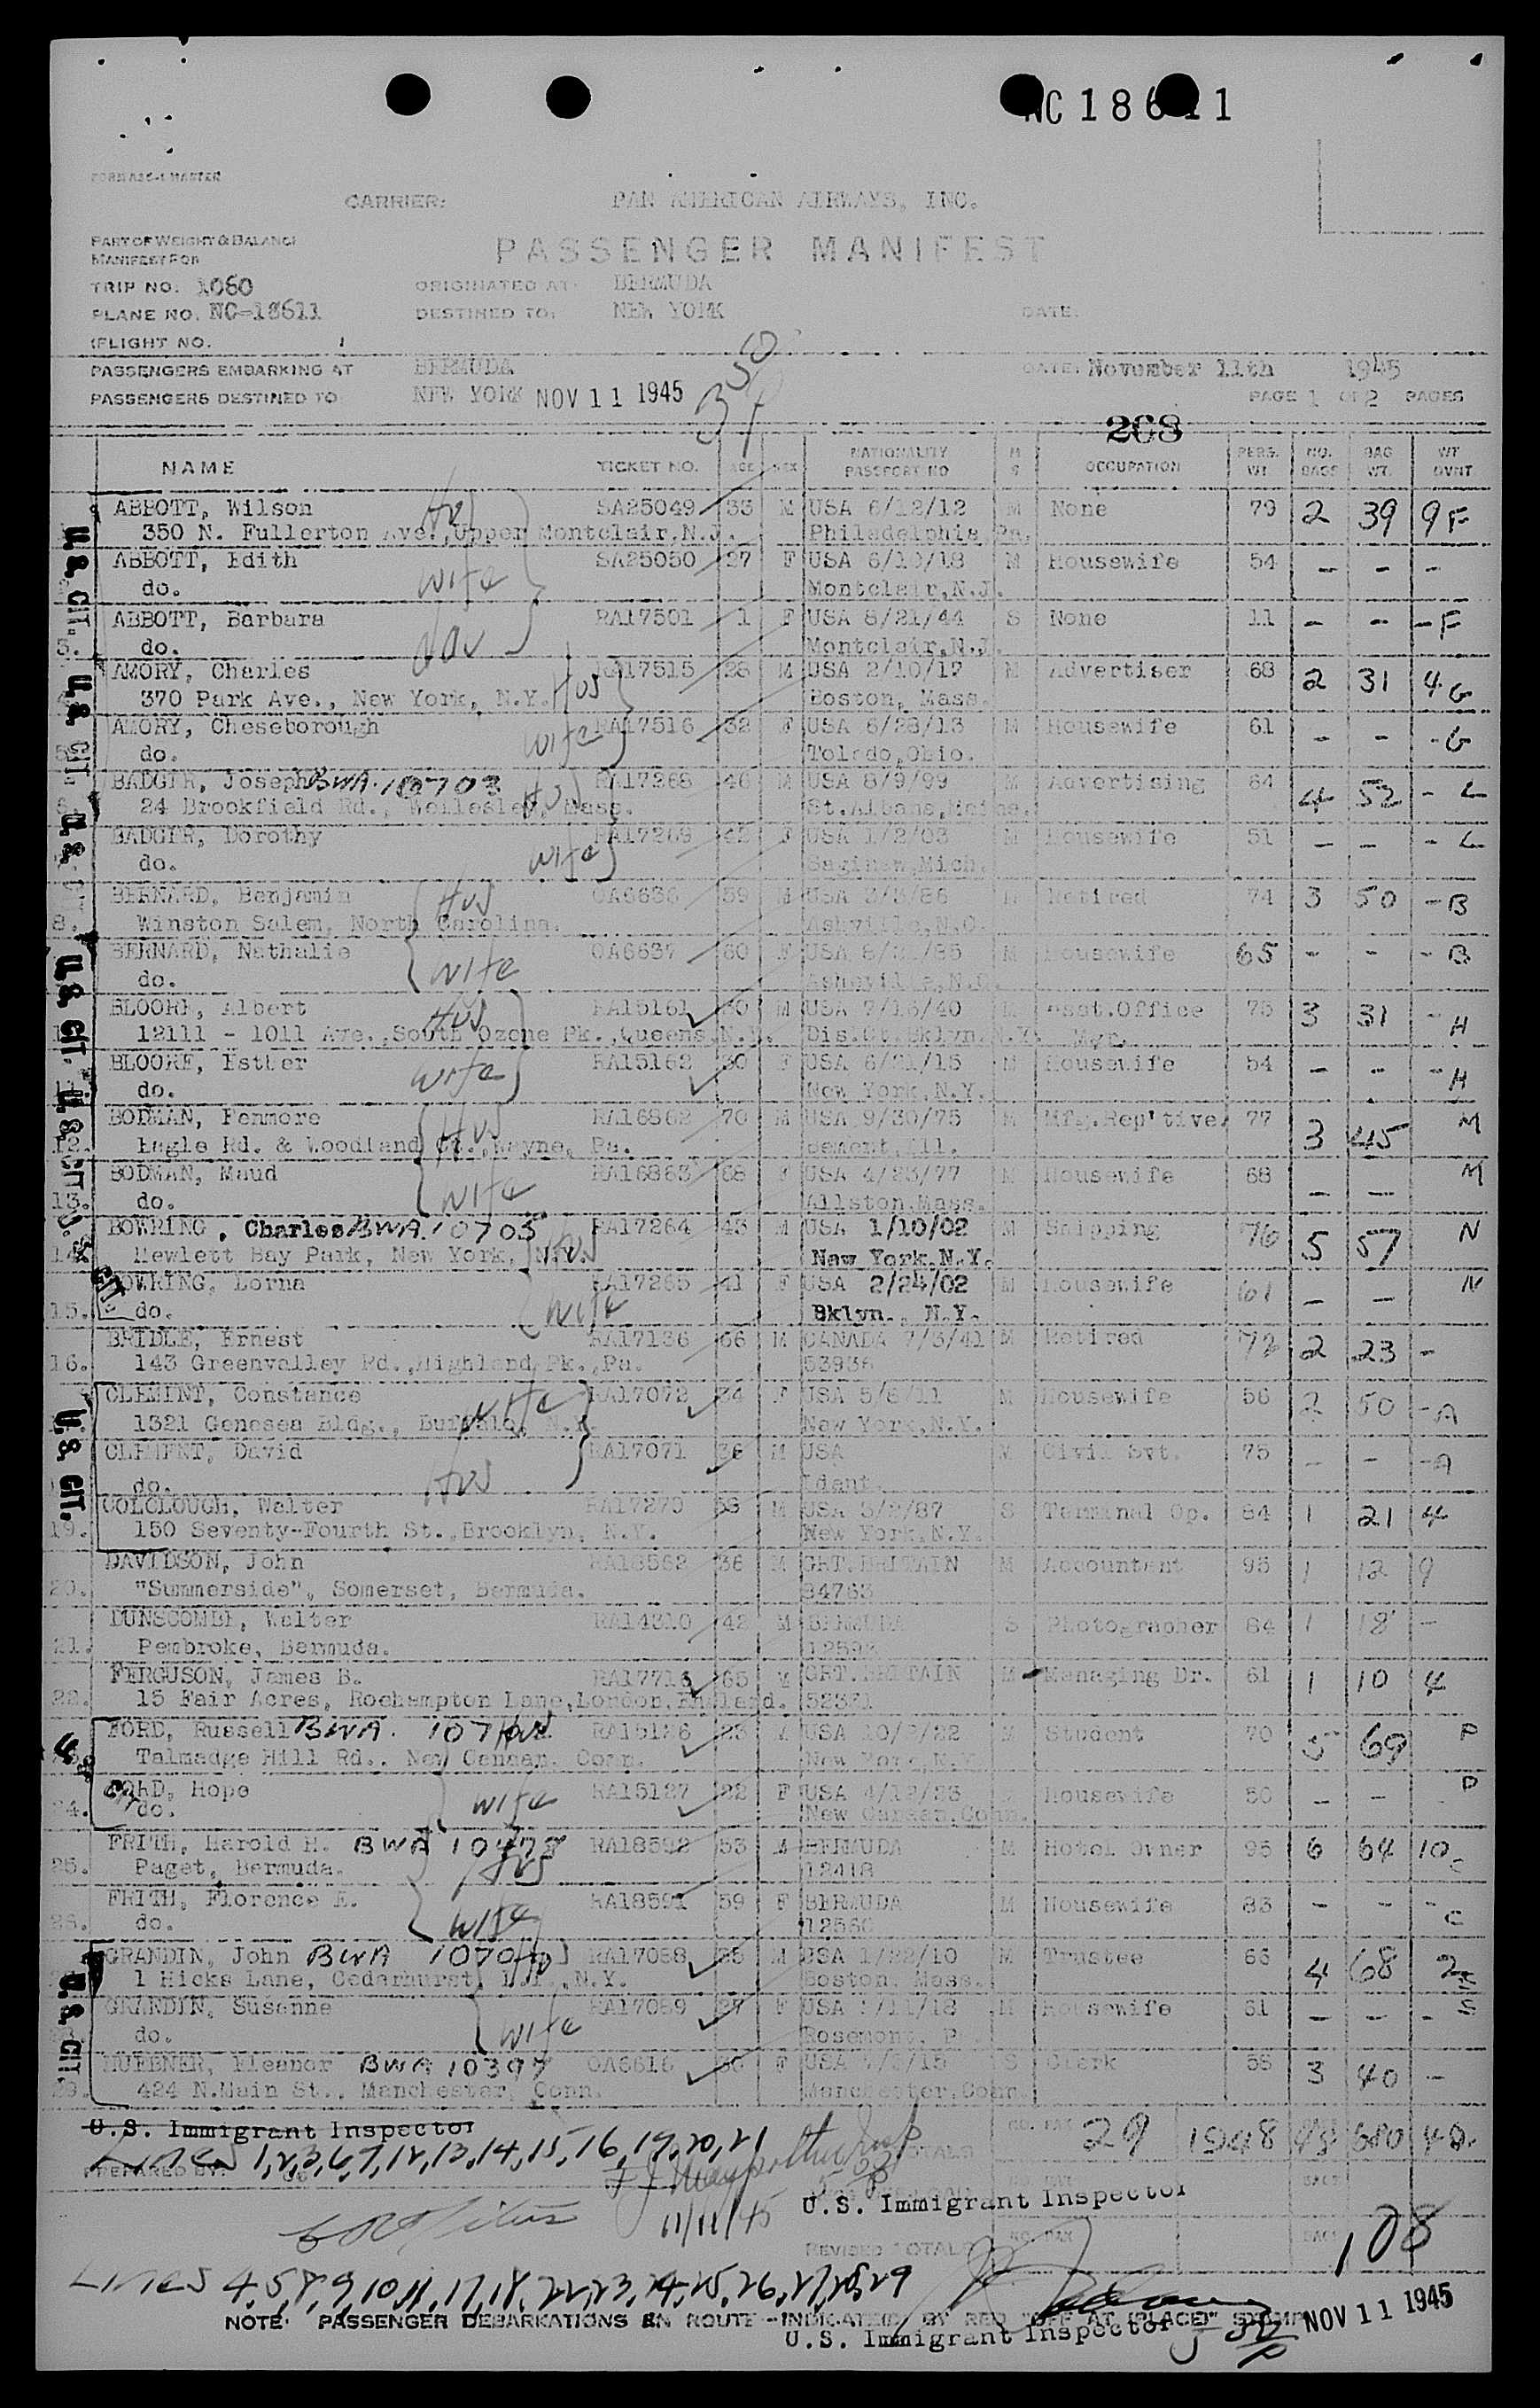 NC 18611
FORM ASC-1 MASTER
CARRIER: PAN AMERICAN AIRWAYS, INC.
PART OF WEIGHT & BALANCE
MANIFEST FOR
PASSENGER MANIFEST
TRIP NO. 1060 ORIGINATED AT: BERMUDA
PLANE NO. NC-18611 DESTINED TO: NEW YORK DATE:
(FLIGHT NO.
PASSENGERS EMBARKING AT BERMUDA DATE: November 11th 1945
PASSENGERS DESTINED TO NEW YORK NOV 11 1945 PAGE 1 OF 2 PAGES
268
NAME TICKET NO. AGE SEX NATIONALITY PASSPORT NO M S OCCUPATION PERS. WT. NO. BAGS BAG WT. WT OVNT
ABBOTT, Wilson SA25049 33 M USA 6/12/12 M None 79 2 39 9 F
350 N. Fullerton Ave., Upper Montclair, N.J. Philadelphia, Pa.
ABBOTT, Edith wife SA25050 27 F USA 6/10/18 M Housewife 54 - - -
do. Montclair, N.J.
ABBOTT, Barbara RA17501 1 F USA 8/21/44 S None 11 - - - F
3. do. Montclair, N.J.
AMORY, Charles RA17515 28 M USA 2/10/17 M Advertiser 68 2 31 4 G
370 Park Ave., New York, N.Y. Hus Boston, Mass.
AMORY, Cheseborough wife RA17516 32 F USA 6/28/13 M Housewife 61 - - - G
do. Toledo, Ohio.
BADGER, Joseph BWA 10703 Hus RA17268 46 M USA 8/9/99 M Advertising 84 4 52 - L
24 Brookfield Rd., Wellesley, Mass. St. Albans, Maine.
BADGER, Dorothy wife RA17269 42 F USA 1/2/03 M Housewife 51 - - - L
do. Saginaw, Mich.
BERNARD, Benjamin Hus OA6636 59 M USA 3/3/86 M Retired 74 3 50 - B
8. Winston Salem, North Carolina. Ashville, N.C.
BERNARD, Nathalie wife OA6637 60 F USA M Housewife 65 - - - B
do. Asheville, N.C.
BLOORE, Albert Hus RA15161 30 M USA 7/16/40 M Asst. Office 75 3 31 - H
12111 - 1011 Ave., South Ozone Pk., Queens, N.Y. Dis. Ct. Bklyn. N.Y. Mgr.
BLOORE, Esther wife RA15162 30 F USA 6/21/15 M Housewife 54 - - - H
do. New York, N.Y.
BODMAN, Fenmore Hus RA16862 70 M USA 9/30/75 M Mfg. Rep'tive. 77 3 45 M
12. Eagle Rd. & Woodland Ct., Wayne, Pa. Lemont, Ill.
BODMAN, Maud wife RA16863 68 F USA 4/23/77 M Housewife 68 - - M
13. do. Allston, Mass.
BOWRING, Charles BWA 10705 Hus RA17264 43 M USA 1/10/02 M Shipping 76 5 57 N
14. Hewlett Bay Park, New York, N.Y. New York, N.Y.
BOWRING, Lorna wife RA17265 41 F USA 2/24/02 M Housewife 61 - - N
15. do. Bklyn., N.Y.
BRIDLE, Ernest RA17136 66 M CANADA 7/3/41 M Retired 72 2 23 -
16. 143 Greenvalley Rd., Highland Pk., Pa. 53936
CLEMENT, Constance wife RA17072 34 F USA 5/6/11 M Housewife 56 2 50 - A
1321 Genesea Bldg., Buffalo, N.Y. New York, N.Y.
CLEMENT, David Hus RA17071 36 M USA M Civil Svt. 75 - - - A
do. Ident.
COLCLOUGH, Walter RA17270 58 M USA S Terminal Op. 84 1 21 4
19. 150 Seventy-Fourth St., Brooklyn, N.Y. New York, N.Y.
DAVIDSON, John RA18562 36 M GRT. BRITAIN M Accountant 95 1 12 9
20. "Summerside", Somerset, Bermuda. 84763
DUNSCOMBE, Walter RA14310 42 M BERMUDA S Photographer 84 1 18 -
21. Pembroke, Bermuda.
FERGUSON, James B. RA17716 65 M GRT. BRITAIN M Managing Dr. 61 1 10 4
22. 15 Fair Acres, Roehampton Lane, London, England. 52371
FORD, Russell BWA RA15126 23 M USA M Student 70 5 69 P
Talmadge Hill Rd., New Canaan, Conn. New York, N.Y.
FORD, Hope wife RA15127 22 F USA Housewife 50 - - P
24. do. New Canaan, Conn.
FRITH, Harold H. BWA 10478 Hus RA18592 53 M BERMUDA M Hotel Owner 95 6 64 10 C
25. Paget, Bermuda. 12418
FRITH, Florence E. wife RA18591 59 F BERMUDA M Housewife 83 - - - C
26. do. 12560
GRANDIN, John BWA RA17088 35 M USA 1/22/10 M Trustee 66 4 68 2 S
1 Hicks Lane, Cedarhurst, L.I., N.Y. Boston, Mass.
GRANDIN, Susanne wife RA17089 27 F USA M Housewife 61 - - - S
do. Rosemont, P
HUEBNER, Eleanor BWA 10397 OA6616 30 F USA S Clerk 58 3 40 -
29. 424 N. Main St., Manchester, Conn. Manchester, Conn.
U.S. CIT.
U.S. Immigrant Inspector
Lines 1,2,3,6,7,12,13,14,15,16,19,20,21
NO. PAX 29 1948 TOTALS
PREPARED BY:
11/11/45
U.S. Immigrant Inspector
REVISED TOTALS NO. PAX BAGS 108
Lines 4,5,8,9,10,11,17,18,22,23,24,25,26,27,28,29
NOTE: PASSENGER DEBARKATIONS EN ROUTE - INDICATED BY RED "OFF AT (PLACE)" STAMP
U.S. Immigrant Inspector
NOV 11 1945